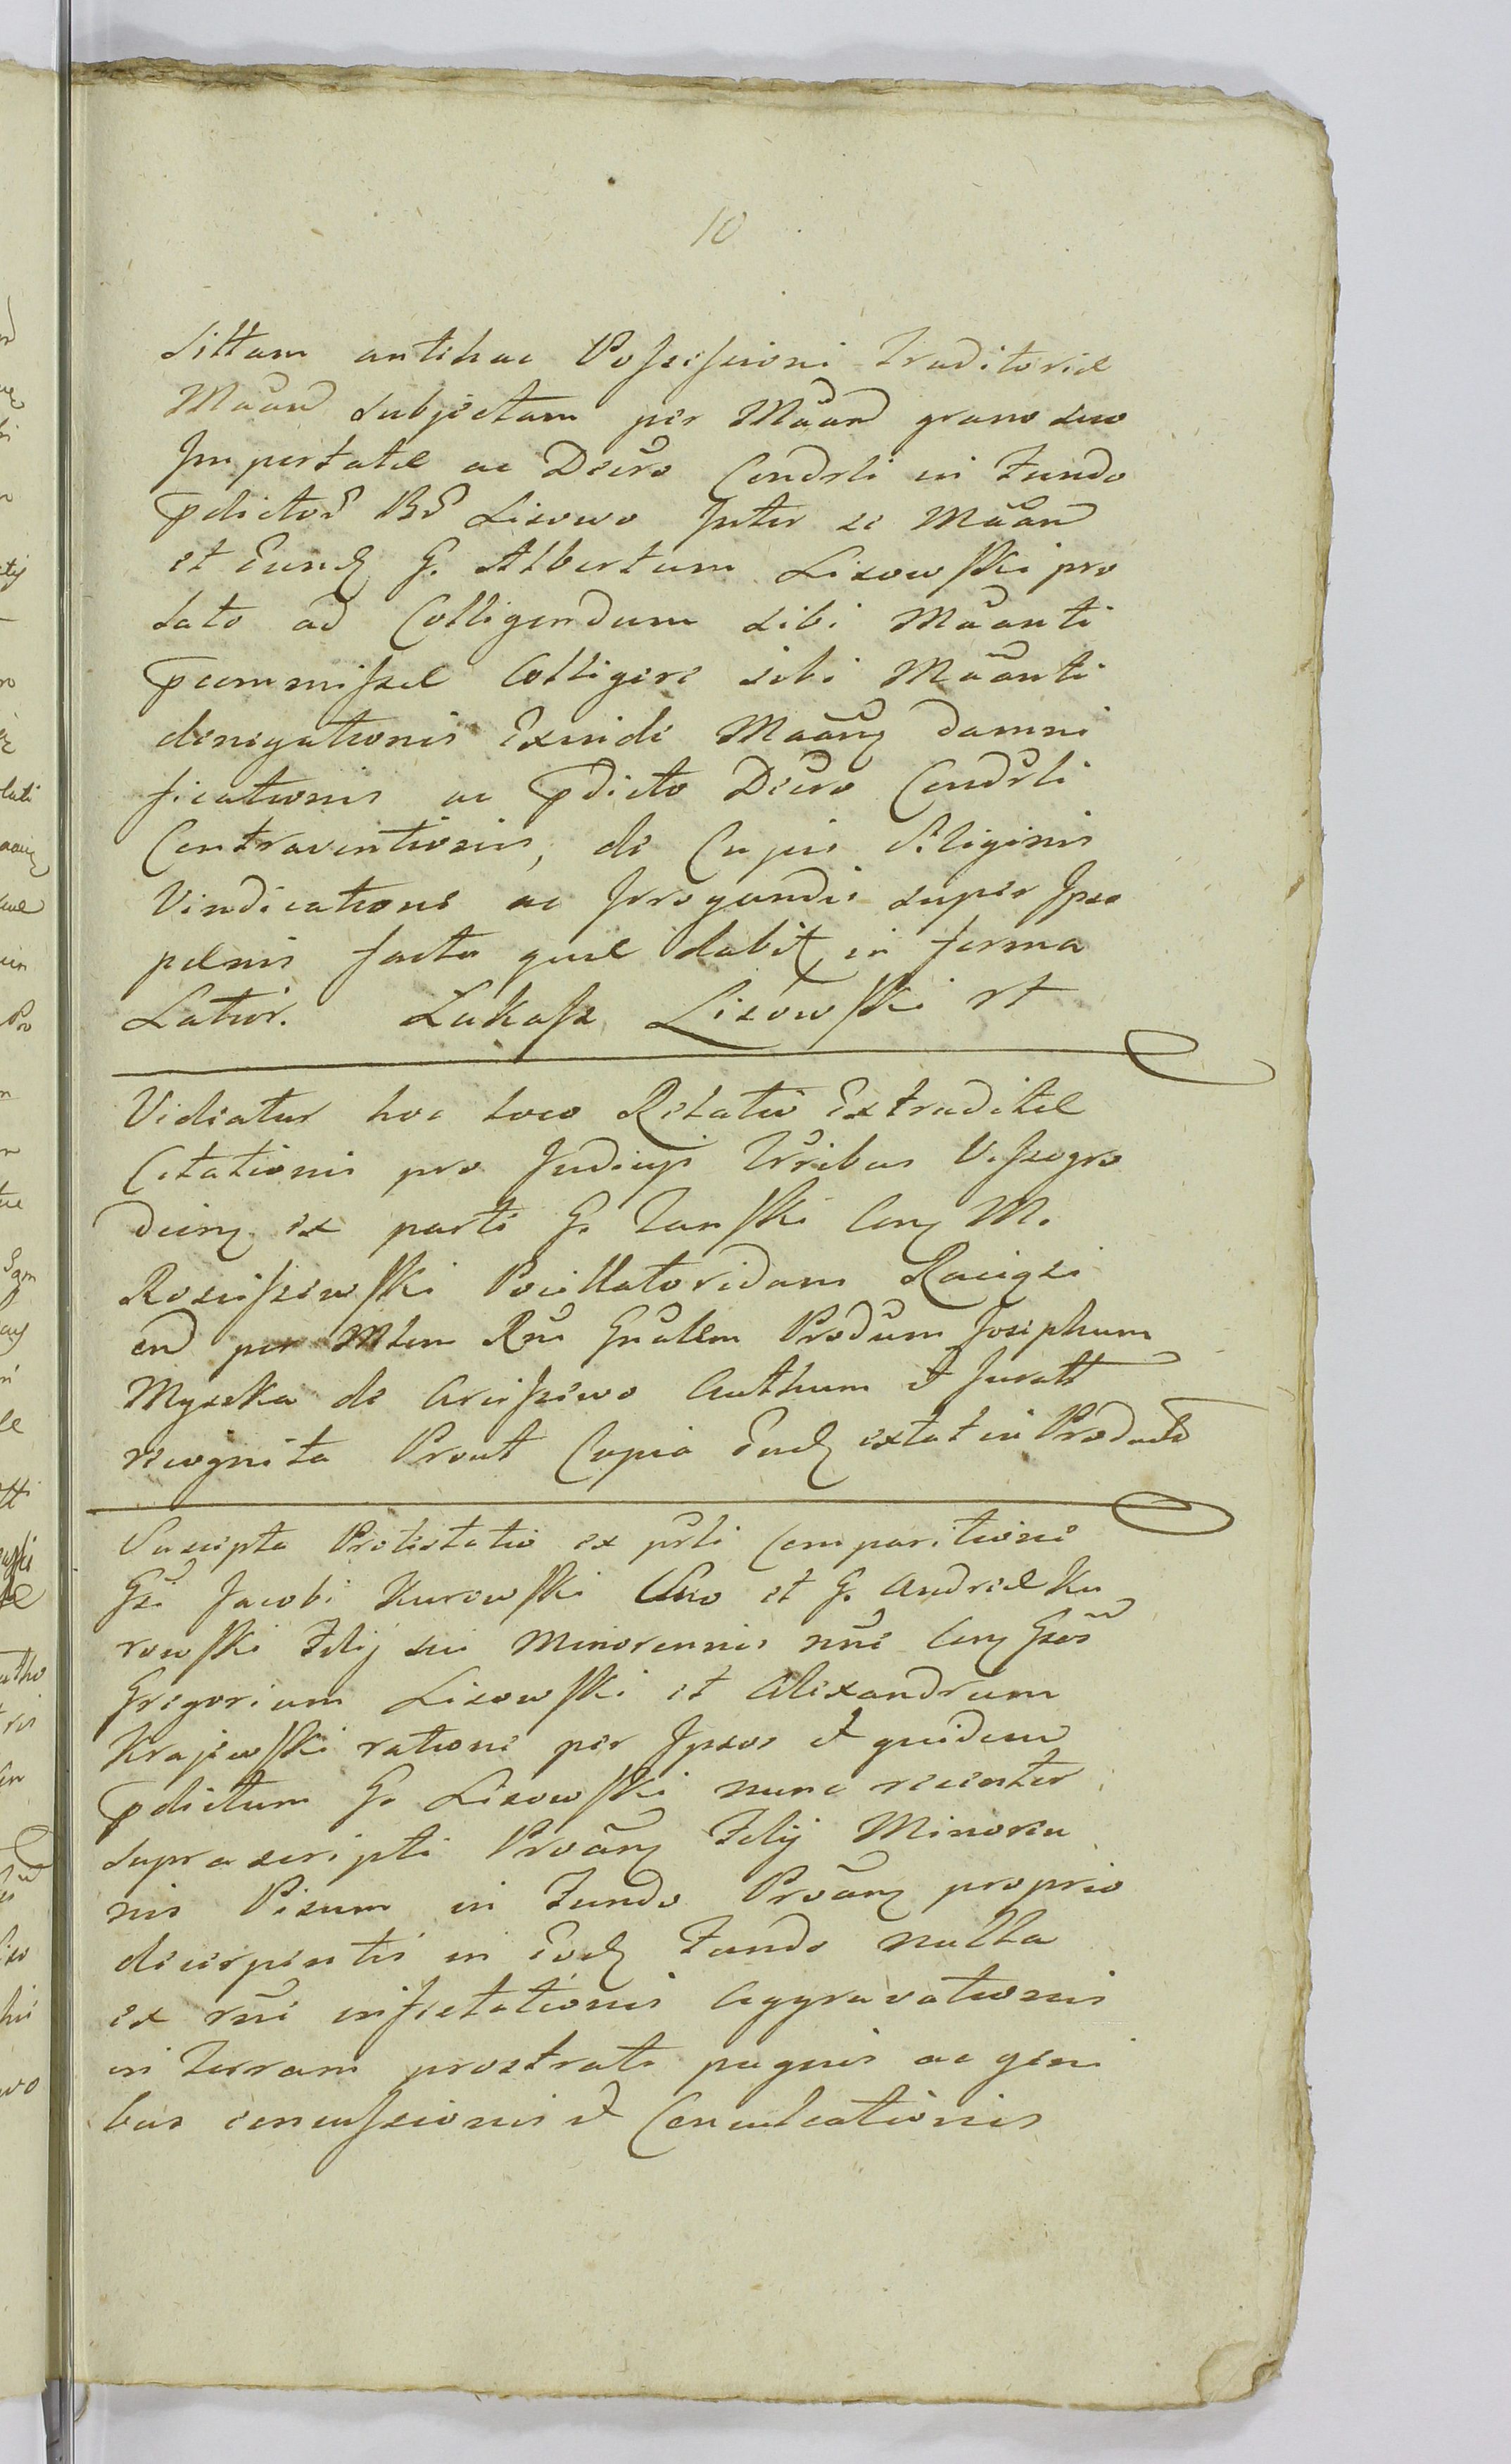 10
sittam antehac Possessioni Traditoriæ
Mãan subjectam per Mãan grano suo
Importatæ ac Decro Condrli in Fundo
pdictor Br Lisowo Inter se Mãan
et Eund G. Albertum Lisowski pro
lato ad Colligendum sibi Mãanti
pcommissæ Colligere sibi Mãanti
denegationis Exinde Mãang damni
ficationis ac pdicto Decro Condrli
Contraventionis, de Cujus Siliginis
Vindicatione ac Irrogandis super Ipso
pænis facta quæ dabit in forma
Latior. Łukasz Lisowski rt
Videatur hoc loco Relatio Extraditæ
Citationis pro Judicijs Trribus Vissogro
dien ex parte G. Zanski Con M.
Rosciszewski Pocillatoridam Raciązi
en per Mtem Rni Gnalem Produm Josephum
Myszka de Croiszewo Authum et Juratt
recognita Prout Copia Eud extat in Prod
Suscepta Protestatio ex prsti Comparitione
Gsi Jacobi Kurowski Suo et G. Andreæ Ku
rowski Filij sui Minorennis nne Con Gsos
Gregorium Lisowski et Alexandrum
Krajewski ratione per Ipsos et quidem
pdictum G. Lisowski nunc recenter
suprascripti Proãn Filij Minoren
nis Pisum in Fundo Proãn proprio
decerpentis in Eod Fundo nulla
ex rne insectationis Aggravationis
in Terram prostrati pugnis ac gen
bus concussionis et Conculcationis